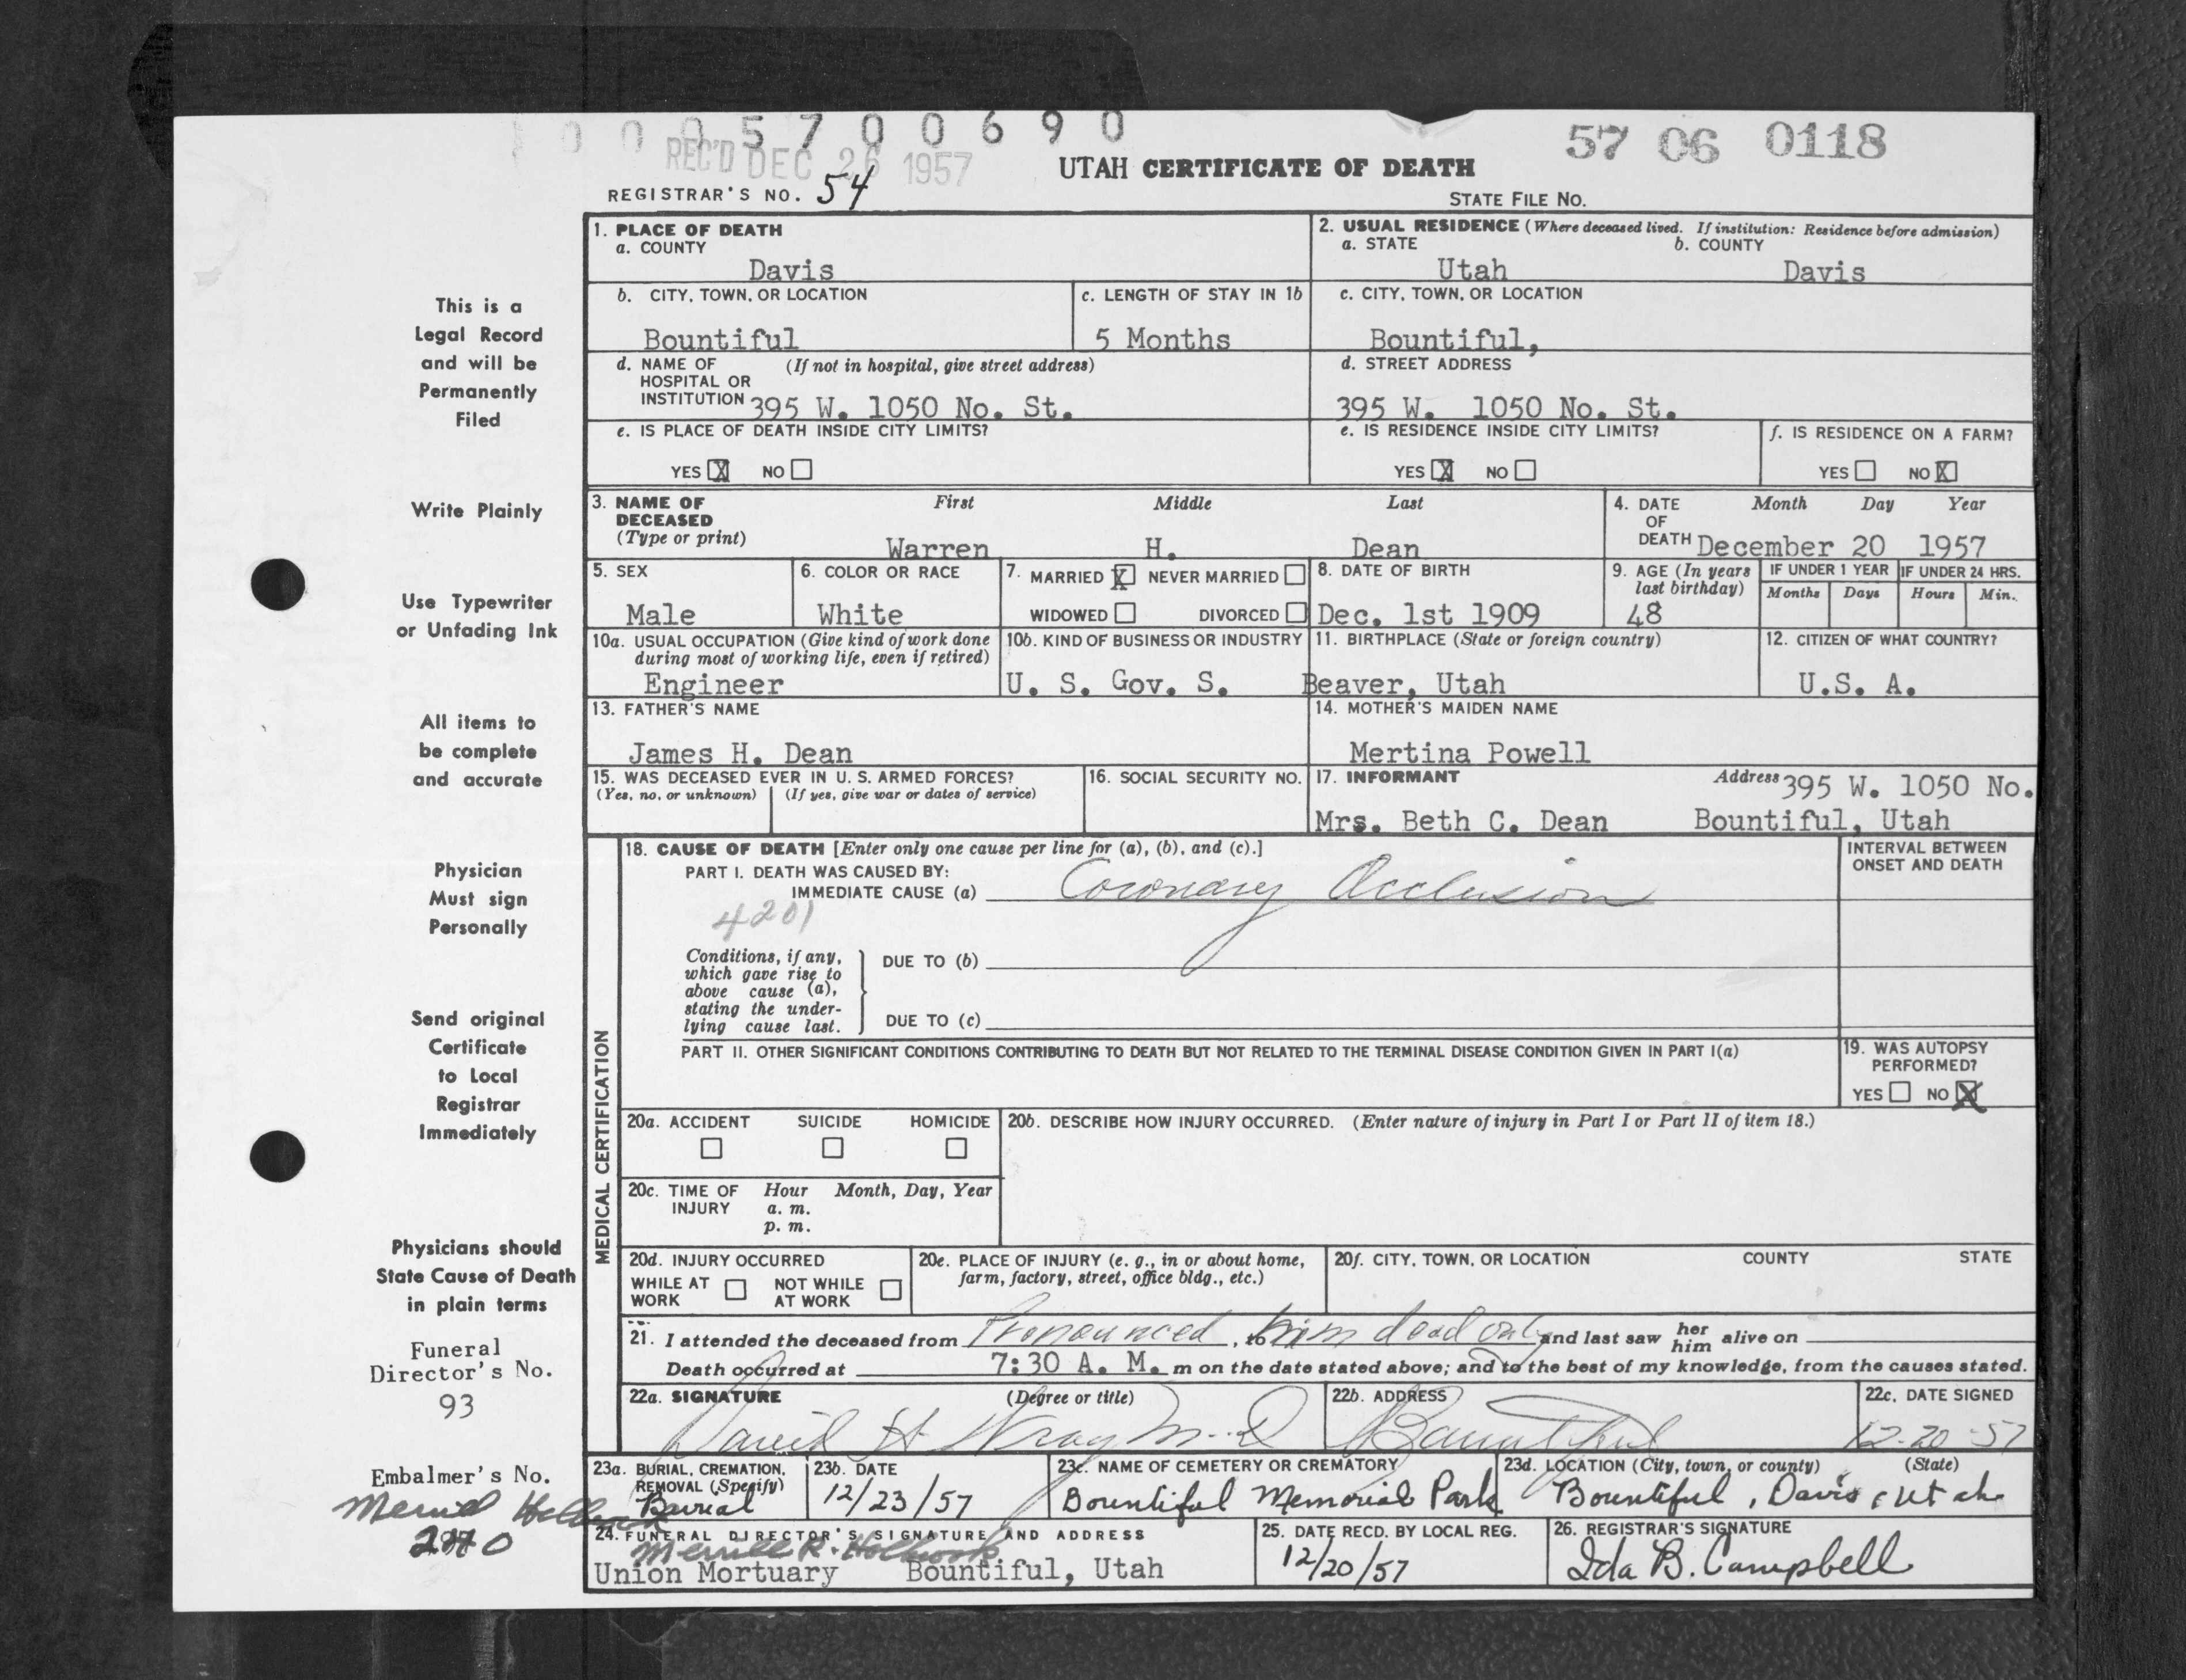 1 0 0 0 5 7 0 0 6 9 0
REC'D DEC 26 1957
57 06 0118
UTAH CERTIFICATE OF DEATH
REGISTRAR'S NO. 54
STATE FILE NO.
This is a
Legal Record
and will be
Permanently
Filed
Write Plainly
Use Typewriter
or Unfading Ink
All items to
be complete
and accurate
Physician
Must sign
Personally
Send original
Certificate
to Local
Registrar
Immediately
Physicians should
State Cause of Death
in plain terms
Funeral
Director's No.
93
Embalmer's No.
Merrill Holbrook
1. PLACE OF DEATH
a. COUNTY
Davis
2. USUAL RESIDENCE (Where deceased lived. If institution: Residence before admission)
a. STATE b. COUNTY
Utah Davis
b. CITY, TOWN, OR LOCATION
Bountiful
c. LENGTH OF STAY IN 1b
5 Months
c. CITY, TOWN, OR LOCATION
Bountiful,
d. NAME OF (If not in hospital, give street address)
HOSPITAL OR
INSTITUTION 395 W. 1050 No. St.
d. STREET ADDRESS
395 W. 1050 No. St.
e. IS PLACE OF DEATH INSIDE CITY LIMITS?
YES X NO
e. IS RESIDENCE INSIDE CITY LIMITS?
YES X NO
f. IS RESIDENCE ON A FARM?
YES NO X
3. NAME OF First Middle Last
DECEASED
(Type or print)
Warren H. Dean
4. DATE Month Day Year
OF
DEATH December 20 1957
5. SEX
Male
6. COLOR OR RACE
White
7. MARRIED X NEVER MARRIED
WIDOWED DIVORCED
8. DATE OF BIRTH
Dec. 1st 1909
9. AGE (In years
last birthday)
48
IF UNDER 1 YEAR IF UNDER 24 HRS.
Months Days Hours Min.
10a. USUAL OCCUPATION (Give kind of work done
during most of working life, even if retired)
Engineer
10b. KIND OF BUSINESS OR INDUSTRY
U. S. Gov. S.
11. BIRTHPLACE (State or foreign country)
Beaver, Utah
12. CITIZEN OF WHAT COUNTRY?
U.S. A.
13. FATHER'S NAME
James H. Dean
14. MOTHER'S MAIDEN NAME
Mertina Powell
15. WAS DECEASED EVER IN U. S. ARMED FORCES?
(Yes, no, or unknown) (If yes, give war or dates of service)
16. SOCIAL SECURITY NO.
17. INFORMANT Address 395 W. 1050 No.
Mrs. Beth C. Dean Bountiful, Utah
MEDICAL CERTIFICATION
18. CAUSE OF DEATH [Enter only one cause per line for (a), (b), and (c).]
PART I. DEATH WAS CAUSED BY:
IMMEDIATE CAUSE (a) Coronary Occlusion
4201
INTERVAL BETWEEN
ONSET AND DEATH
Conditions, if any,
which gave rise to
above cause (a),
stating the under-
lying cause last.
DUE TO (b)
DUE TO (c)
PART II. OTHER SIGNIFICANT CONDITIONS CONTRIBUTING TO DEATH BUT NOT RELATED TO THE TERMINAL DISEASE CONDITION GIVEN IN PART I(a)
19. WAS AUTOPSY
PERFORMED?
YES NO X
20a. ACCIDENT SUICIDE HOMICIDE
20b. DESCRIBE HOW INJURY OCCURRED. (Enter nature of injury in Part I or Part II of item 18.)
20c. TIME OF Hour Month, Day, Year
INJURY a. m.
p. m.
20d. INJURY OCCURRED
WHILE AT NOT WHILE
WORK AT WORK
20e. PLACE OF INJURY (e. g., in or about home,
farm, factory, street, office bldg., etc.)
20f. CITY, TOWN, OR LOCATION COUNTY STATE
21. I attended the deceased from Pronounced, to him dead only and last saw her him alive on
Death occurred at 7:30 A. M. m on the date stated above; and to the best of my knowledge, from the causes stated.
22a. SIGNATURE (Degree or title)
David H Wray M.D
22b. ADDRESS
Bountiful
22c. DATE SIGNED
12-20-57
23a. BURIAL, CREMATION,
REMOVAL (Specify)
Burial
23b. DATE
12/23/57
23c. NAME OF CEMETERY OR CREMATORY
Bountiful Memorial Park
23d. LOCATION (City, town, or county) (State)
Bountiful, Davis, Utah
24. FUNERAL DIRECTOR'S SIGNATURE AND ADDRESS
Merrill R. Holbrook
Union Mortuary Bountiful, Utah
25. DATE RECD. BY LOCAL REG.
12/20/57
26. REGISTRAR'S SIGNATURE
Ida B. Campbell